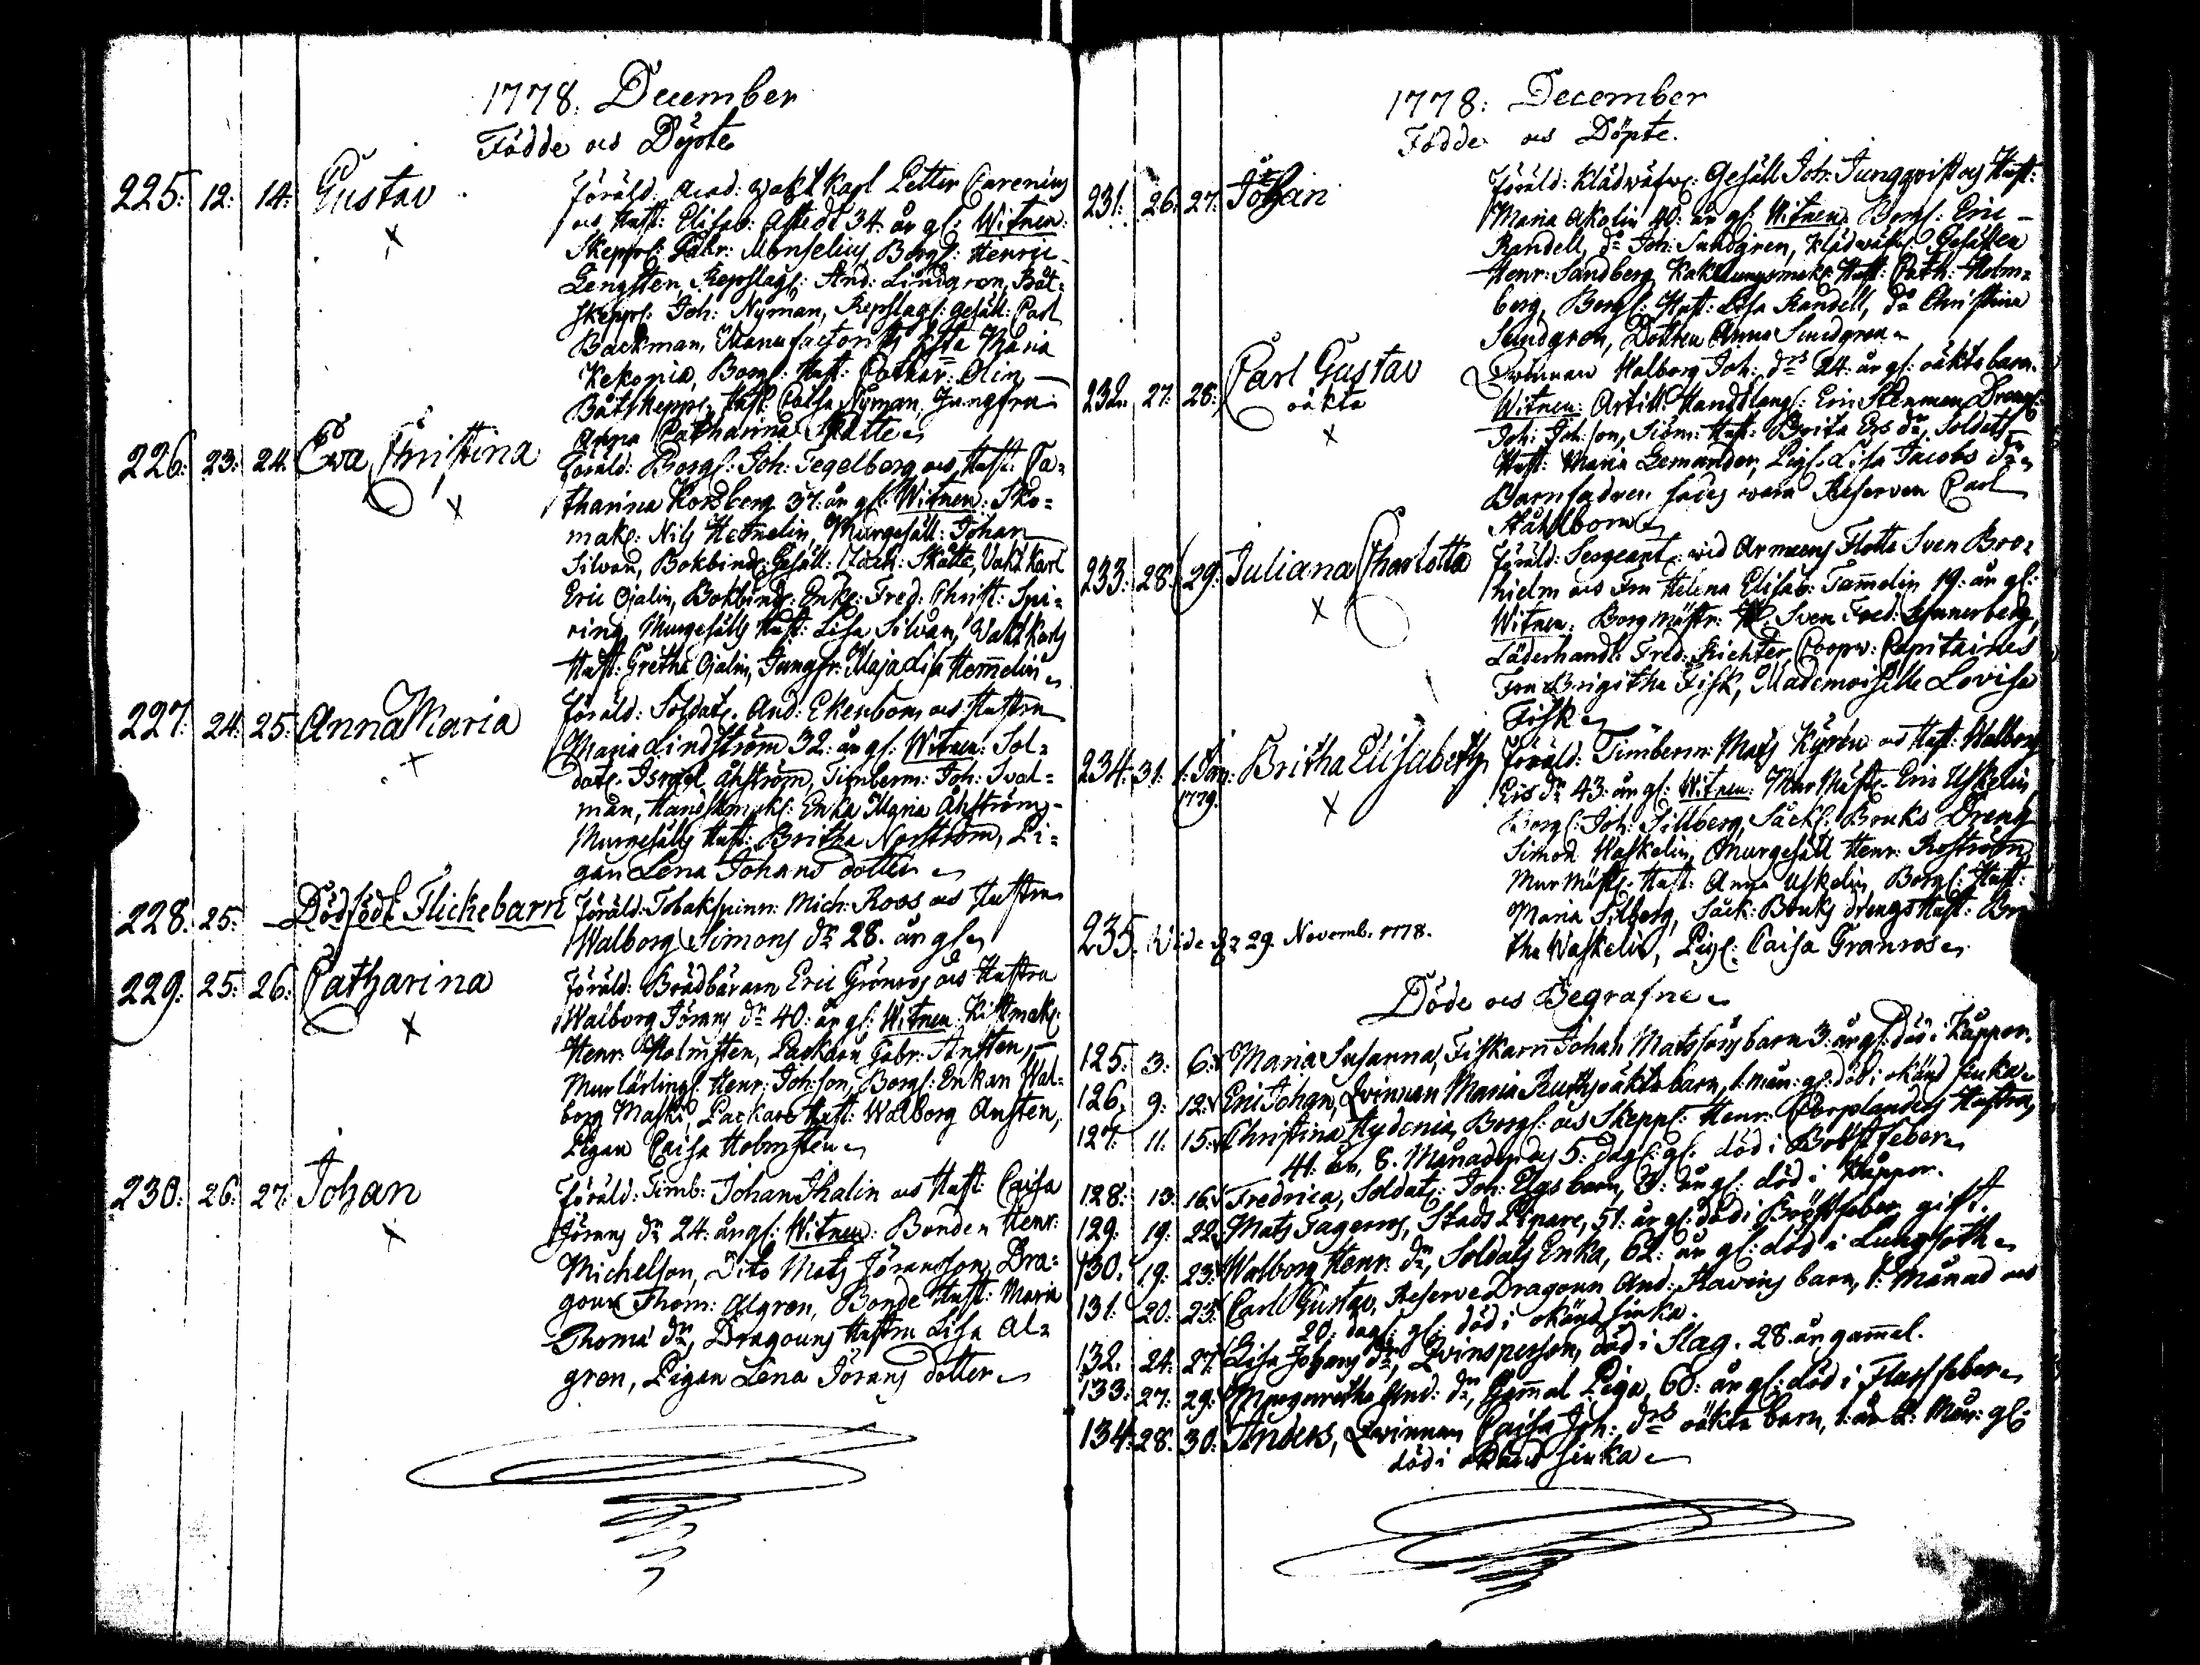 1778. December
Födde och Döpte
225. 12. 14. Gustav
Föräld: Acad: Wakt Karl Petter Carenius
och Hust: Elisab: Astedt 34. år gl: Witnen:
Skeppr: Gabr: Monselius, Borg: Henric
Lengsten, Repslag: And: Lindgren, Båt-
skeppr: Joh: Nyman, Repslag: Gesäll: Carl
Backman, Manufactorist Maria
Kekonia, Borg: Hust: Cathar: Olin
Båtskepp: Hust: Caisa Nyman, Jungfru
Anna Catharina Skatte
226. 23. 24. Eva Christina
Föräld: Borg: Joh: Tegelberg och Hust: Ca-
tharina Korsberg 37. år gl: Witnen: Sko-
mak: Nils Hemelin, Murgesäll: Johan
Silvan, Bokbind: Gesäll: Zach: Skatte, Vakt Karl
Eric Ojalin, Bokbind: Enk: Fred: Christ: Spi-
ring, Murgesälls Hust: Lisa Silvan, Vakt Karls
Hust: Gretha Ojalin, Jungfr: Maja Lisa Hemelin
227. 24. 25. Anna Maria
Föräld: Soldat: And: Ekenbom och Hustru
Maria Lindström 32. år gl: Witnen: Sol-
dat: Israel Åhström, Timberm: Joh: Sval-
man, Handskmak: Enka Maria Åhström
Murgesälls Hust: Britha Norström, Pi-
gan Lena Johans dotter
228. 25. Dödfödt Flickebarn
Föräld: Tobakspinn: Mich: Roos och Hustru
Walborg Simons dr 28. år gl
229. 25. 26. Catharina
Föräld: Brädbäraren Eric Grönroos och Hustru
Walborg Jörans dr 40. år gl: Witnen: Kistmak:
Henr: Holmsten, Packarn Gabr: Ansten,
Murlärling: Henr: Joh:son, Borg: Enkan Wal-
borg Mask, Packare Hust: Walborg Ansten,
Pigan Caisa Holmsten
230. 26. 27. Johan
Föräld: Timb: Johan Ihalin och Hust: Caisa
Jörans dr 24. år gl: Witnen: Bonden Henr:
Michelson, Dito Mats Jöransson, Dra-
goun Thom: Algren, Bonde Hust: Maria
Thomæ dr, Dragouns Hustru Lisa Al-
gren, Pigan Lena Jörans dotter
1778. December
Födde och Döpte.
231. 26. 27. Johan
Föräld: Klädwäfv: Gesäll Joh: Jungqvist och Hust:
Maria Akolin 40. år gl: Witnen: Borg: Eric
Randell, do Joh: Sundgren, Klädwäfv: Gesällen
Henr: Sandberg, Kakelungsmak: Hust: Cath: Holm-
berg, Borg: Hust: Lisa Randell, do Christina
Sundgren, Dottren Anna Sundgren
232. 27. 28. Carl Gustav oäkta
Qvinnan Walborg Joh: drs 24. år gl: oäkta barn.
Witnen: Artill: Handtlang: Eric Stenman, Dreng:
Joh: Joh:son, Sjöm: Hust: Brita Ers dr, Soldats
Hust: Maria Lemander, Pig: Lisa Jacobs dr
Barnfadren sades wara Reserven Carl
Ståhlbom
233. 28. 29. Juliana Charlotta
Föräld: Sergeant: wid Armeens Flotta Sven Bro-
hielm och Fru Helena Elisab: Tammelin 19. år gl:
Witnen: Borgmästr: Sven Fred: Lemnerberg,
Läderhandl: Fred: Richter, Coopv: Capitaines
Fru Brigitha Fisk, Mademoiselle Lovisa
Fisk
234. 31. 1. Jan: 1779. Britha Elisabeth
Föräld: Timberm: Mats Kyrén och Hust: Walborg
Ers dr 43. år gl: Witnen: Murmäst: Eric Uskelin,
Borg: Joh: Sillberg, Sock: Bruks Dreng
Simon Waskelin, Murgesäll Henr: Roström,
Murmäst: Hust: Anna Uskelin, Borg: Hust:
Maria Silberg, Sock: Bruks drengs Hust: Bri
tha Waskelin, Pig: Caisa Granroos
235. Vide d: 29. Novemb. 1778.
Döde och Begrafne
125. 3. 6. Maria Susanna, Fiskarn Johan Matssons barn 3. år gl: död i Kåppor.
126. 9. 12. Eric Johan, Qvinnan Maria Ruths oäkta barn, 1. mån: gl: död i okänd siuka
127. 11. 15. Christina Hydenia, Borg: och Skepp: Henr: Hustru,
41. år, 8. Månader och 5. dag: gl: död i Bröstfeber
128. 13. 16. Fredrica, Soldat: Joh: Elgs barn, 3. år gl: död i Kåppor.
129. 19. 22. Mats Fagerroos, Stads Pipare, 51. år gl: död i Bröstfeber, gift.
130. 19. 23. Walborg Henr: dr, Soldats Enka, 62. år gl: död i Lungsoth
131. 20. 23. Carl Gustav, Reserve Dragoun And: Havins barn, 1. Månad och
20. dag: gl: död i okänd siuka.
132. 24. 27. Lisa Johans dr, Qvinsperson, död i Slag. 28. år gammal.
133. 27. 29. Margaretha And: dr, Gammal Piga, 60. år gl: död i Flussfeber
134. 28. 30. Anders, Qvinnan Caisa Joh: drs oäkta barn, 1. år 2. Mån: gl:
död i okänd siuka